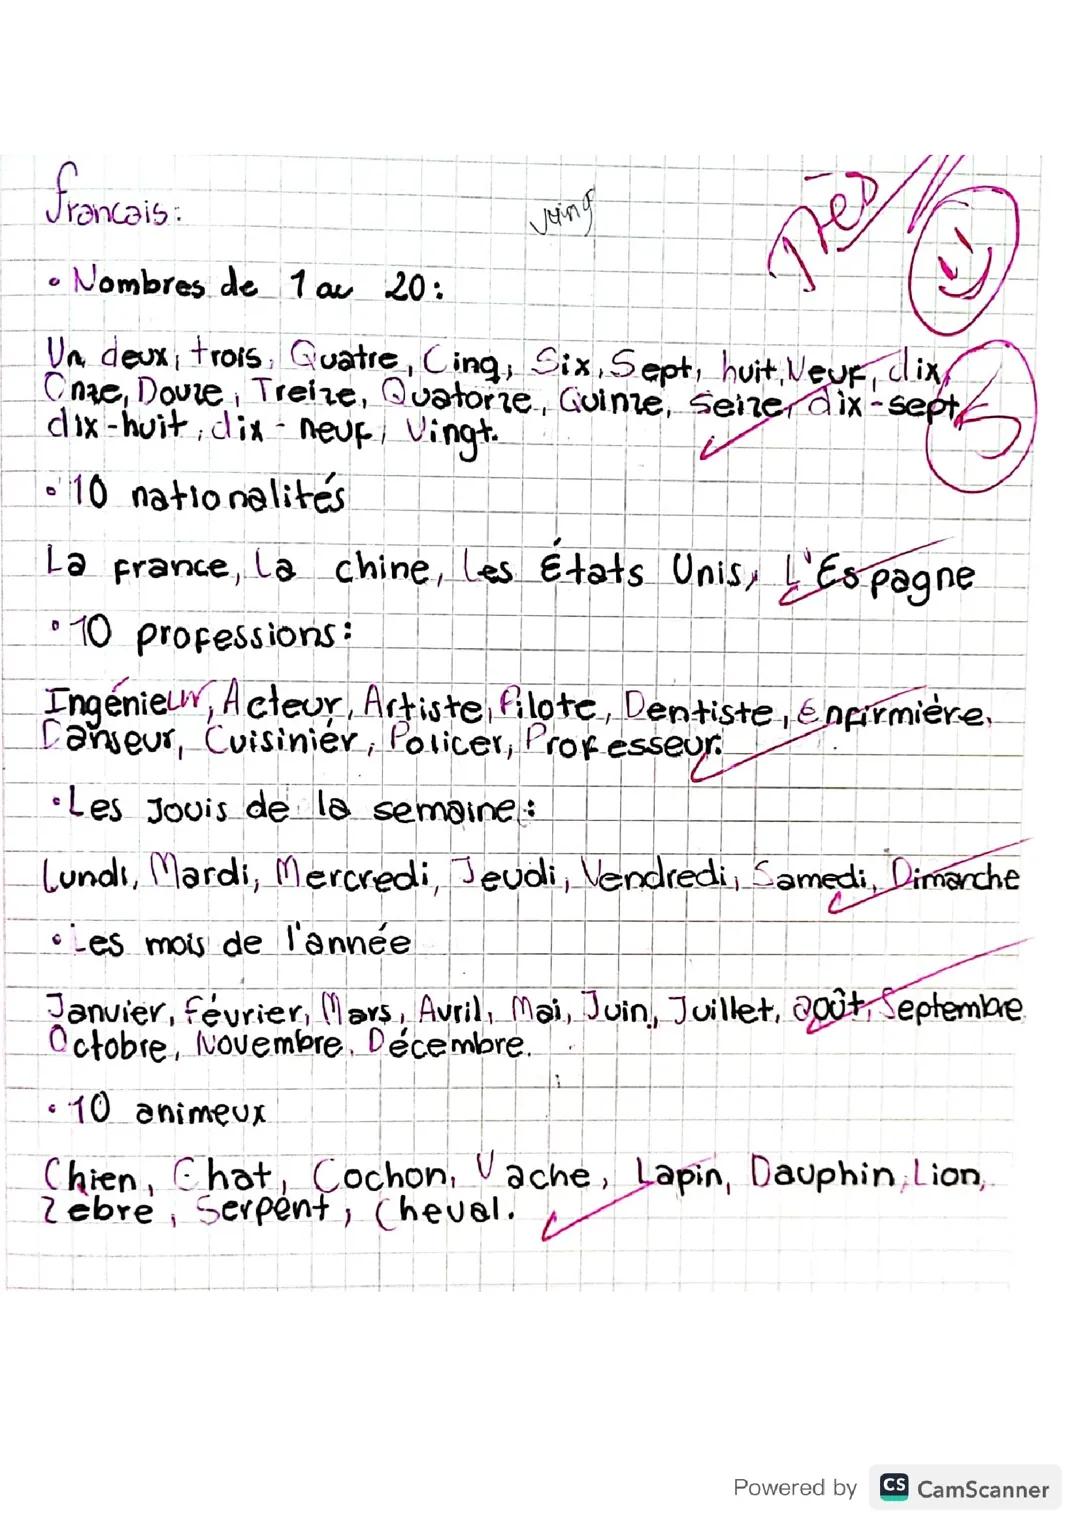 Francais:
• Nombres de 1 au 20:
Un, deux, trois, Quatre, Cinq, Six, Sept, huit, Neuf, dix,
Onze, Douze, Treize, Quatorze, Quinze, Seize, dix-sept,
dix-huit, dix-neuf, Vingt.
• 10 nationalités
La france, La chine, Les États Unis, L'Espagne
• 10 professions:
Ingénieur, Acteur, Artiste, Pilote, Dentiste, Enfirmière,
Danseur, Cuisinier, Policer, Professeur.
• Les Jouis de la semaine:
Lundi, Mardi, Mercredi, Jeudi, Vendredi, Samedi, Dimarche
• Les mois de l'année
Janvier, Février, Mars, Avril, Mai, Juin, Juillet, août, Septembre
Octobre, Novembre, Décembre.
• 10 animeux
Chien, Chat, Cochon, Vache, Lapin, Dauphin, Lion,
Zebre, Serpent, Cheval.
Powered by CS CamScanner